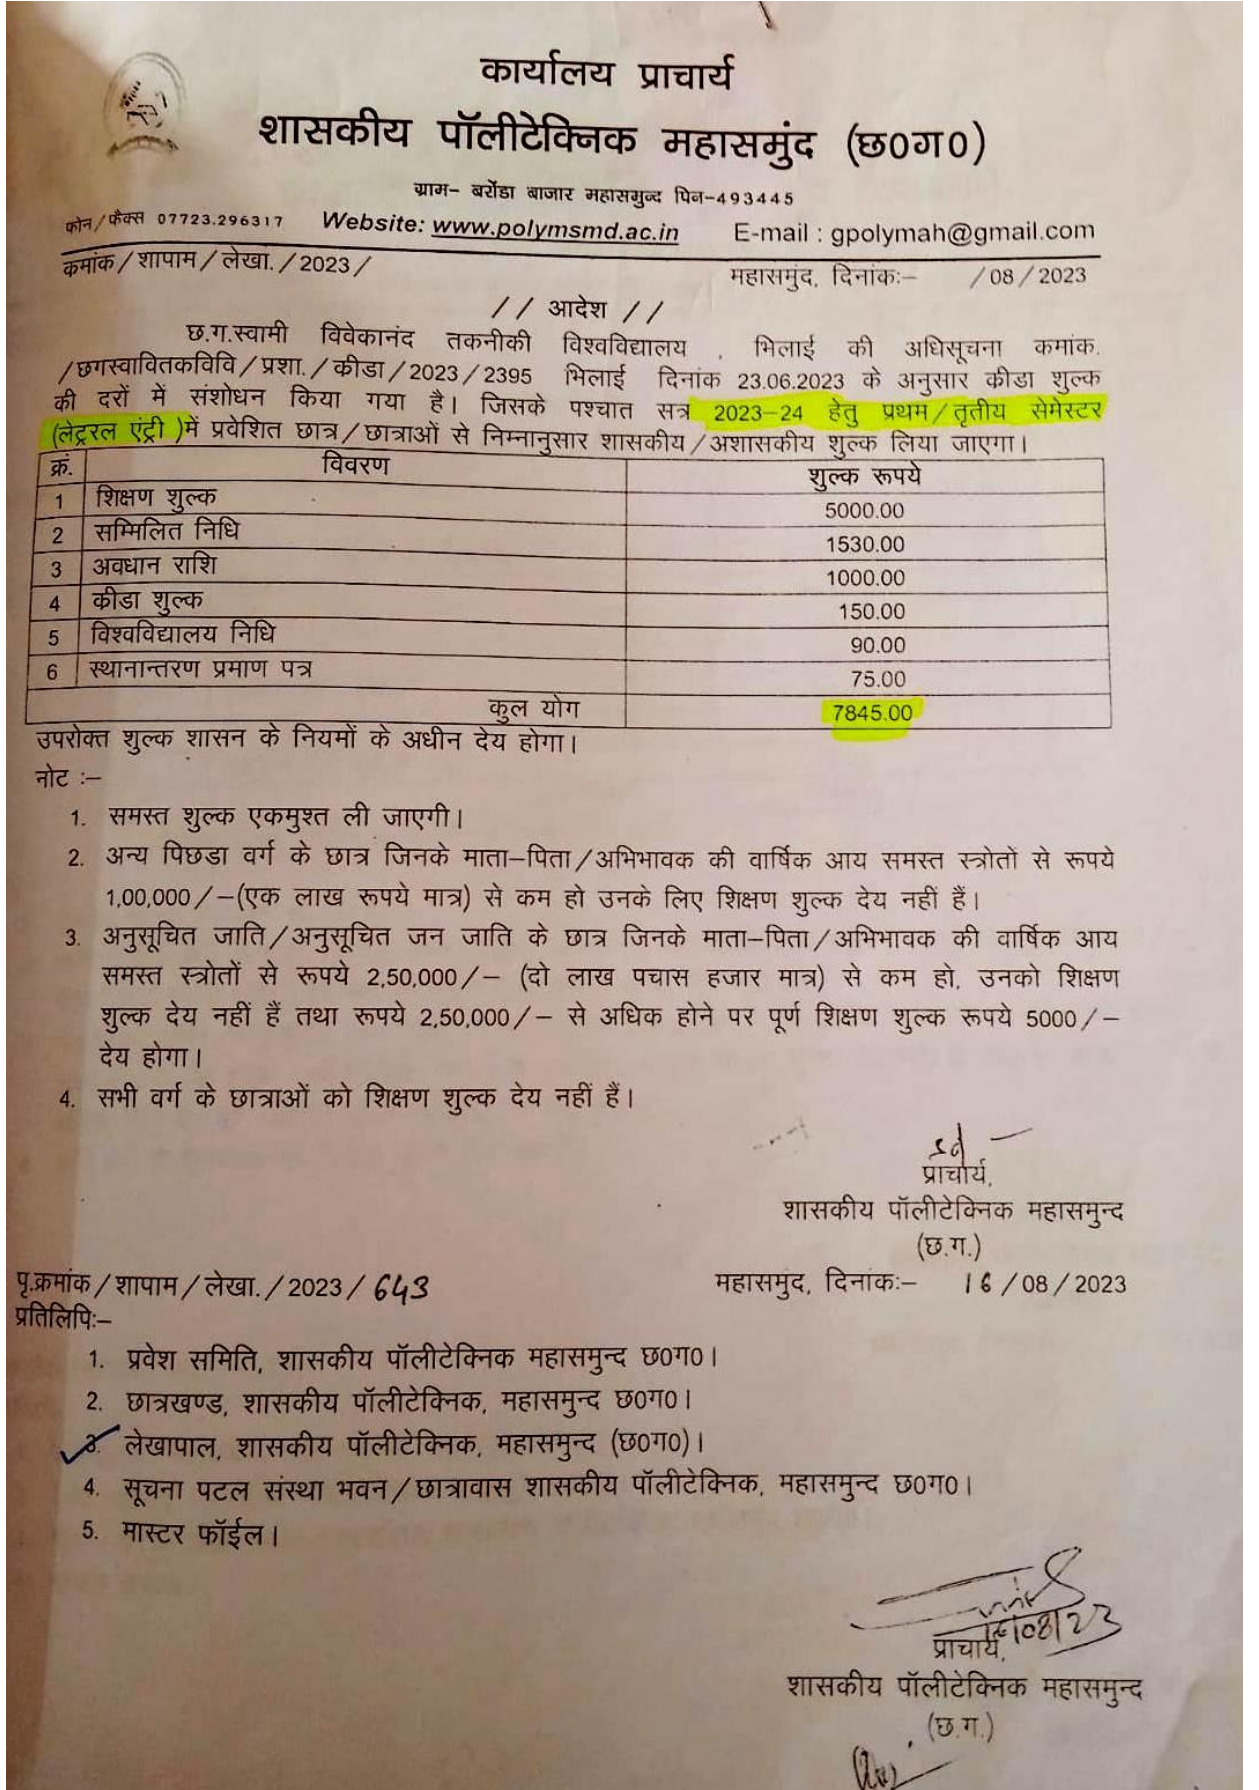 कार्यालय प्राचार्य
शासकीय पॉलीटेक्निक महासमुंद (छ0ग0)
ग्राम– बरोंडा बाजार महासमुन्द पिन–493445
फोन/फैक्स 07723.296317 Website: www.polymsmd.ac.in E-mail : gpolymah@gmail.com
कमांक/शापाम/लेखा./2023/ महासमुंद, दिनांकः– /08/2023
// आदेश //
छ.ग.स्वामी विवेकानंद तकनीकी विश्वविद्यालय , भिलाई की अधिसूचना कमांक.
/छगस्वावितकविवि/प्रशा./कीडा/2023/2395 भिलाई दिनांक 23.06.2023 के अनुसार कीडा शुल्क
की दरों में संशोधन किया गया है। जिसके पश्चात सत्र 2023–24 हेतु प्रथम/तृतीय सेमेस्टर
(लेट्रल एंट्री )में प्रवेशित छात्र/छात्राओं से निम्नानुसार शासकीय/अशासकीय शुल्क लिया जाएगा।
क्रं. विवरण शुल्क रूपये
1 शिक्षण शुल्क 5000.00
2 सम्मिलित निधि 1530.00
3 अवधान राशि 1000.00
4 कीडा शुल्क 150.00
5 विश्वविद्यालय निधि 90.00
6 स्थानान्तरण प्रमाण पत्र 75.00
कुल योग 7845.00
उपरोक्त शुल्क शासन के नियमों के अधीन देय होगा।
नोट :–
1. समस्त शुल्क एकमुश्त ली जाएगी।
2. अन्य पिछडा वर्ग के छात्र जिनके माता–पिता/अभिभावक की वार्षिक आय समस्त स्त्रोतों से रूपये
1,00,000/–(एक लाख रूपये मात्र) से कम हो उनके लिए शिक्षण शुल्क देय नहीं हैं।
3. अनुसूचित जाति/अनुसूचित जन जाति के छात्र जिनके माता–पिता/अभिभावक की वार्षिक आय
समस्त स्त्रोतों से रूपये 2,50,000/– (दो लाख पचास हजार मात्र) से कम हो, उनको शिक्षण
शुल्क देय नहीं हैं तथा रूपये 2,50,000/– से अधिक होने पर पूर्ण शिक्षण शुल्क रूपये 5000/–
देय होगा।
4. सभी वर्ग के छात्राओं को शिक्षण शुल्क देय नहीं हैं।
sd –
प्राचार्य,
शासकीय पॉलीटेक्निक महासमुन्द
(छ.ग.)
पृ.क्रमांक/शापाम/लेखा./2023/643 महासमुंद, दिनांकः– 16/08/2023
प्रतिलिपिः–
1. प्रवेश समिति, शासकीय पॉलीटेक्निक महासमुन्द छ0ग0।
2. छात्रखण्ड, शासकीय पॉलीटेक्निक, महासमुन्द छ0ग0।
3. लेखापाल, शासकीय पॉलीटेक्निक, महासमुन्द (छ0ग0)।
4. सूचना पटल संस्था भवन/छात्रावास शासकीय पॉलीटेक्निक, महासमुन्द छ0ग0।
5. मास्टर फॉईल।
प्राचार्य,
शासकीय पॉलीटेक्निक महासमुन्द
(छ.ग.)